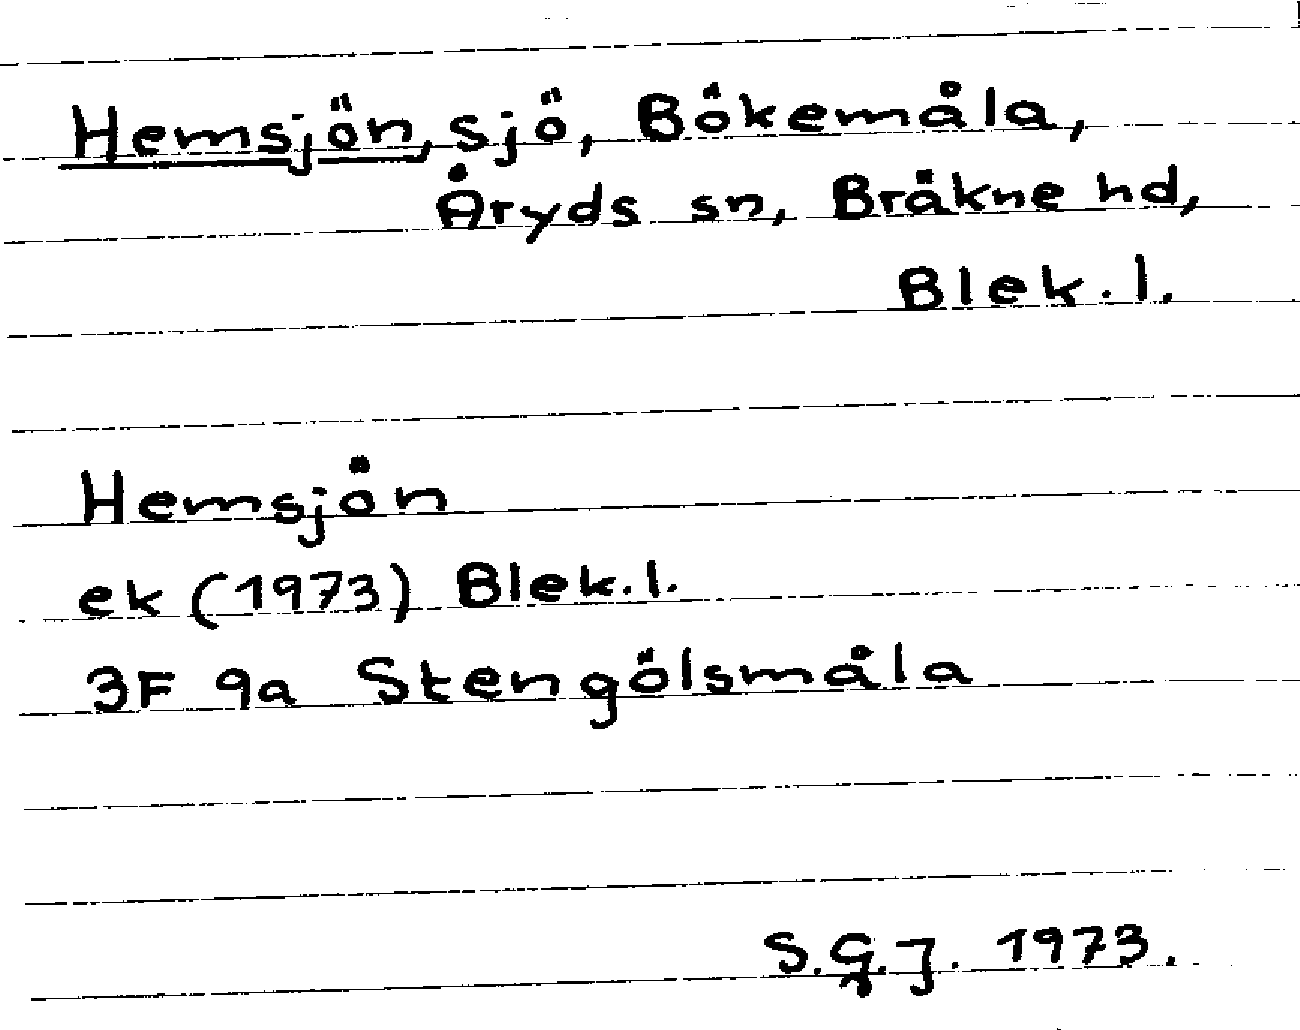 Hemsjön, sjö, Bökemåla,
Åryds sn, Bräkne hd,
Blek. l.
Hemsjön
ek (1973) Blek. l.
3F 9a Stengölsmåla
S.G.J. 1973.